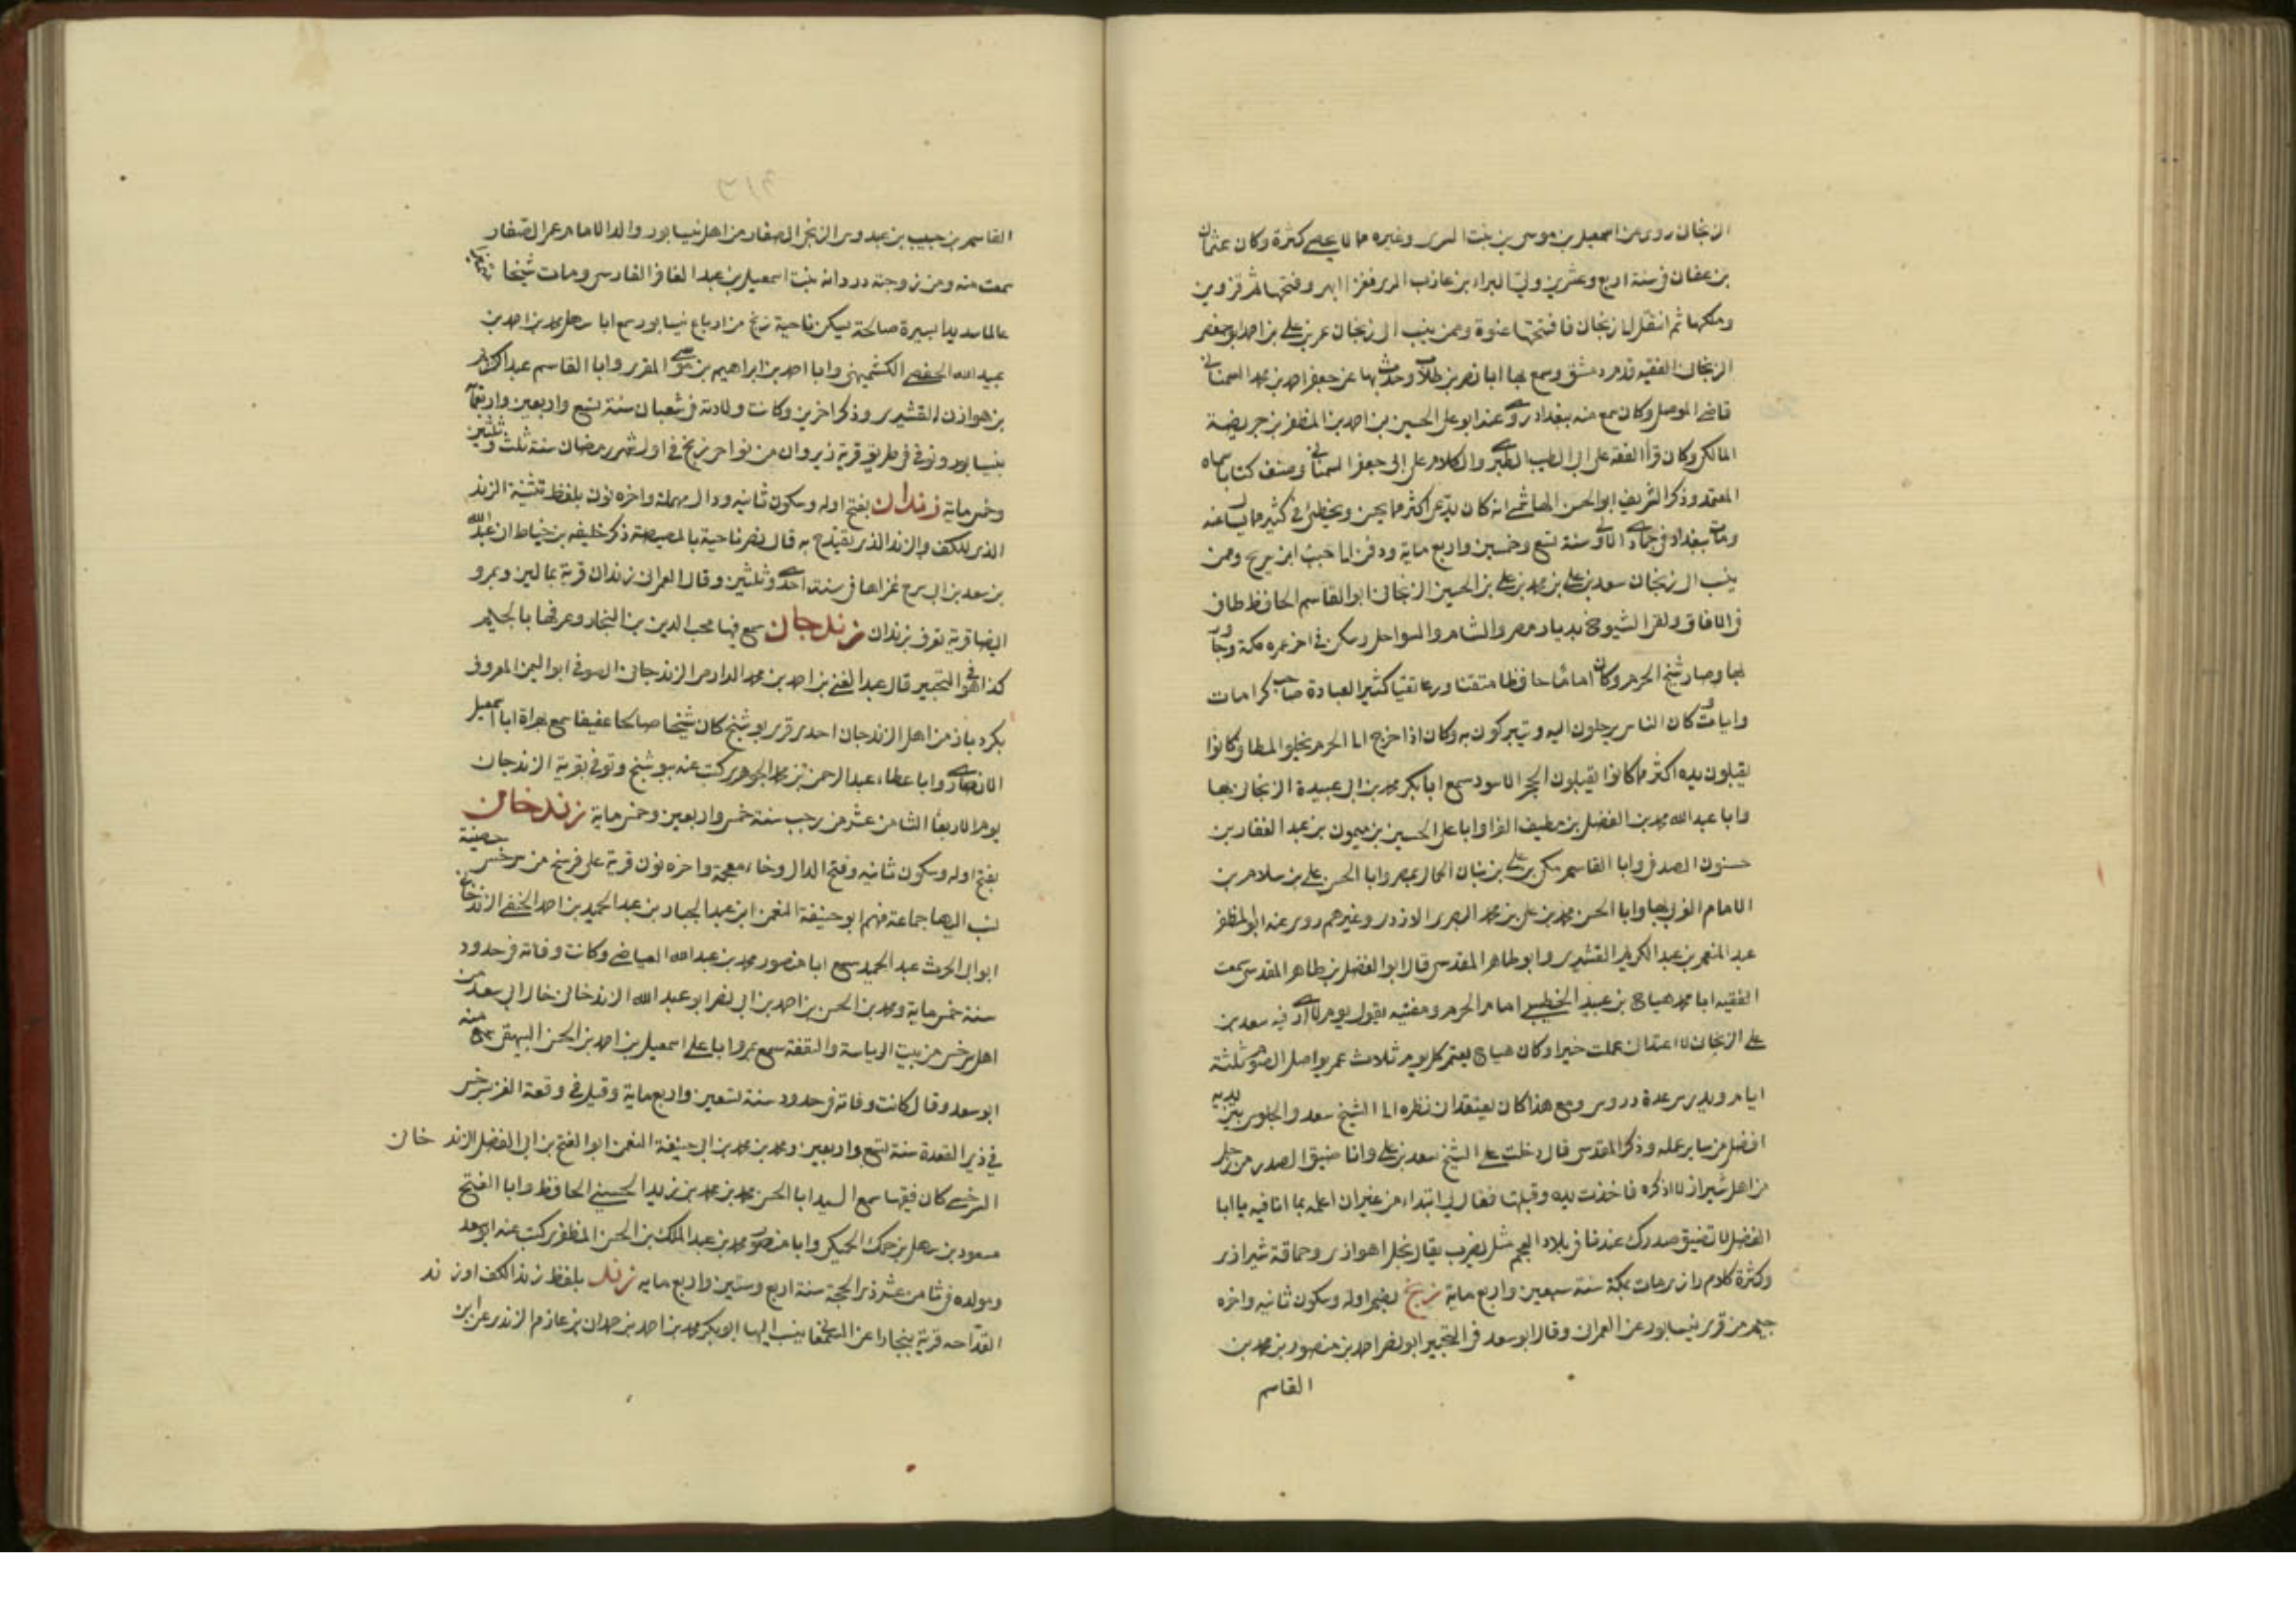 الزنجاني روى عن اسمعيل بن موسى بن بنت السدى وغيره مما لا يحصى كثرة وكان عثمان
بن عفان فى سنة اربع وعشرين ولى البراء بن عازب الرى فغزا ابهر وفتحها ثم قزوين
وملكها ثم انتقل الى زنجان فافتتحها عنوة وممن ينسب الى زنجان عمر بن على بن احمد ابو حفص
الزنجانى الفقيه قدم دمشق وسمع بها ابا نصر بن طلاب وحدث بها عن ابى جعفر احمد بن محمد السمنانى
قاضى الموصل وكان سمع منه ببغداد روى عنه ابو على الحسين بن احمد بن المظفر بن جريضة
المالكى وكان قرأ الفقه على ابى الطيب الطبرى والكلام على ابى جعفر السمنانى وصنف كتابا سماه
المعتمد وذكر الشريف ابو الحسن الهاشمى انه كان يدعى اكثر مما يحسن ويخطئ فى كثير مما يسأل عنه
ومات ببغداد فى جمادى الاولى سنة تسع وخمسين واربع ماية ودفن الى جنب ابن سريج وممن
ينسب الى زنجان سعد بن على بن محمد بن على بن الحسين الزنجانى ابو القاسم الحافظ طاف
فى الافاق ولقى الشيوخ بديار مصر والشام والسواحل وسكن فى اخر عمره مكة وجاور
بها وصار شيخ الحرم وكان اماما حافظا متقنا ورعا تقيا كثير العبادة صاحب كرامات
وايات وكان الناس يرحلون اليه ويتبركون به وكان اذا خرج الى الحرم يخلوا المطاف وكانوا
يقبلون يده اكثر مما كانوا يقبلون الحجر الاسود سمع ابا بكر محمد بن ابى عبيدة الزنجانى بها
وابا عبد الله محمد بن الفضل بن نظيف الفرا وابا على الحسين بن ميمون بن عبد الغفار بن
حسنون الصدفى وابا القاسم مكى بن على بن بنان الحمال بمصر وابا الحسن على بن سلام بن
الامام الغربى بها وابا الحسن محمد بن على بن محمد البصرى الازدى وغيرهم روى عنه ابو المظفر
عبد المنعم بن عبد الكريم القشيرى وابو طاهر المقدسى قال ابو الفضل بن طاهر المقدسى سمعت
الفقيه ابا محمد هياج بن عبيد الخطيبى امام الحرم ومفتيه يقول يوم لا ارى فيه سعد بن
على الزنجانى لا اعتد انى عملت خيرا وكان هياج يعتمر كل يوم ثلاث عمر يواصل الصوم ثلثة
ايام ويدرس عدة دروس ومع هذا كان يعتقد ان نظره الى الشيخ سعد والجلوس بين يديه
افضل من سائر عمله وذكر المقدسى قال دخلت على الشيخ سعد بن على وانا ضيق الصدر من رجل
من اهل شيراز لا اذكره فاخذت يده وقبلتها فقال لى ابتداء من غير ان اعلمه بما انا فيه يا ابا
الفضل لا تضيق صدرك عندنا فى بلاد العجم مثل يضرب يقال بخل اهوازى وحماقة شيرازى
وكثرة كلام رازى ومات بمكة سنة سبعين واربع ماية زنج بضم اوله وسكون ثانيه واخره
جيم من قرى نيسابور عن العمرانى وقال ابو سعد فى التحبير ابو نصر احمد بن منصور بن محمد بن
القاسم
القاسم بن حبيب بن عبدوس الزنجى الصفار من اهل نيسابور والد الامام عمر الصفار
سمعت منه ومن زوجته دردانه بنت اسمعيل بن عبد الغافر الفارسى ومات شيخا
عالما سديد السيرة صالحة يسكن ناحية زنج من ارباع نيسابور سمع ابا سهل محمد بن احمد بن
عبيد الله الحفصى الكشميهنى وابا احمد بن ابراهيم بن موسى المقرى وابا القاسم عبد الكريم
بن هوازن القشيرى وذكر اخرين وكانت ولادته فى شعبان سنة تسع واربعين واربعماية
بنيسابور وتوفى فى طريق قرية زيروان من نواحى زنج فى اول شهر رمضان سنة ثلث وثلثين
وخمس ماية زندان بفتح اوله وسكون ثانيه ودال مهملة واخره نون بلفظ تثنية الزند
الذى للكف والزند الذى يقتدح به قال نصر ناحية بالمصيصة ذكر خليفه بن خياط ان عبد الله
بن سعد بن ابى سرح غزاها فى سنة احدى وثلثين وقال العمرانى زندان قرية بمالين وبمرو
ايضا قرية تعرف بزندان زندجان سمع فيها محب الدين بن النجار وعرفها بالجيم
كذا هو فى التحبير قال عبد الغنى بن احمد بن محمد الدارمى الزندجانى الصوفى ابو اليمن المعروف
بكردبار من اهل الزندجان احدى قرى بوشنج كان شيخا صالحا عفيفا سمع بهراة ابا اسمعيل
الانصارى وابا عطاء عبد الرحمن بن محمد الجوهرى كتبت عنه ببوشنج وتوفى بقرية الزندجان
يوم الاربعا الثامن عشر من رجب سنة خمس واربعين وخمس ماية زندخان
بفتح اوله وسكون ثانيه وفتح الدال وخاء معجمة واخره نون قرية على فرسخ من سرخس حصينة
نسب اليها جماعة منهم ابو حنيفة النعمن ابن عبد الجبار بن عبد الحميد بن احمد الحنفى الزندخانى
ابو ابى الحرث عبد الحميد سمع ابا منصور محمد بن عبد الله العياضى وكانت وفاته فى حدود
سنة خمس ماية ومحمد بن الحسن بن احمد بن ابى نصر ابو عبد الله الزندخانى خال ابى سعد من
اهل سرخس من بيت الرياسة والثقة سمع بمرو ابا على اسمعيل بن احمد بن الحسن البيهقى سمع منه
ابو سعد وقال كانت وفاته فى حدود سنة تسعين واربع ماية وقيل فى وقعة الغز بسرخس
فى ذى القعدة سنة تسع واربعين ومحمد بن محمد بن ابى حنيفة النعمن ابو الفتح بن ابى الفضل الزند خانى
السرخسى كان فقيها سمع السيد ابا الحسن محمد بن محمد بن زيد الحسينى الحافظ وابا الفتح
مسعود بن سهل بن حمك الحمكى وابا منصور محمد بن عبد الملك بن الحسن المظفرى كتب عنه ابو سعد
ومولده فى ثامن عشر ذى الحجة سنة اربع وستين واربع مايه زند بلفظ زند الكف او زند
القداحه قرية ببخارا عن السمعانى ينسب اليها ابو بكر محمد بن احمد بن حمدان بن عازم الزندى عن ابن